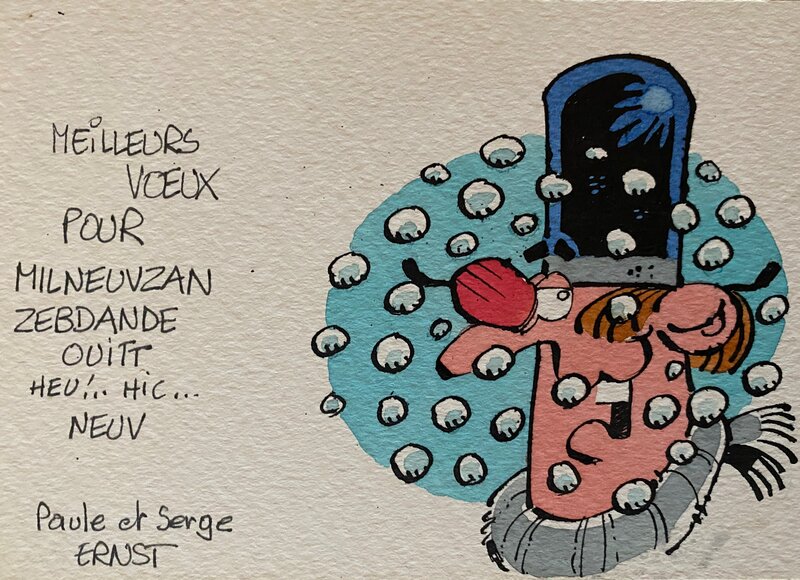 MEILLEURS
VŒUX
POUR
MILNEUVZAN
ZEBDANDE
OUITT
HEU!.. HIC...
NEUV
Paule et Serge
ERNST